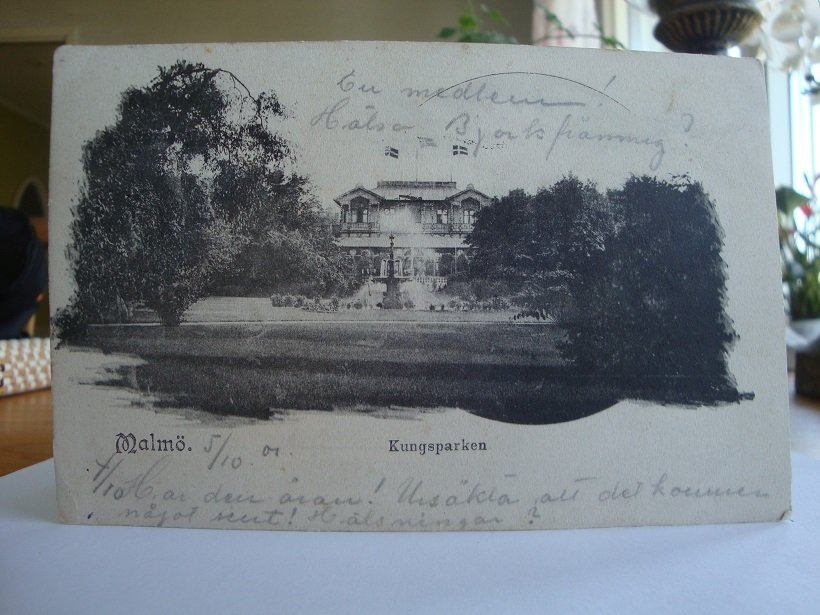 En medlem!
Hälsa Björkfiämmig?
Malmö. 5/10. 01.
Kungsparken
4/10 Har den äran! Ursäkta att det kommer
något sent! Hälsningar?